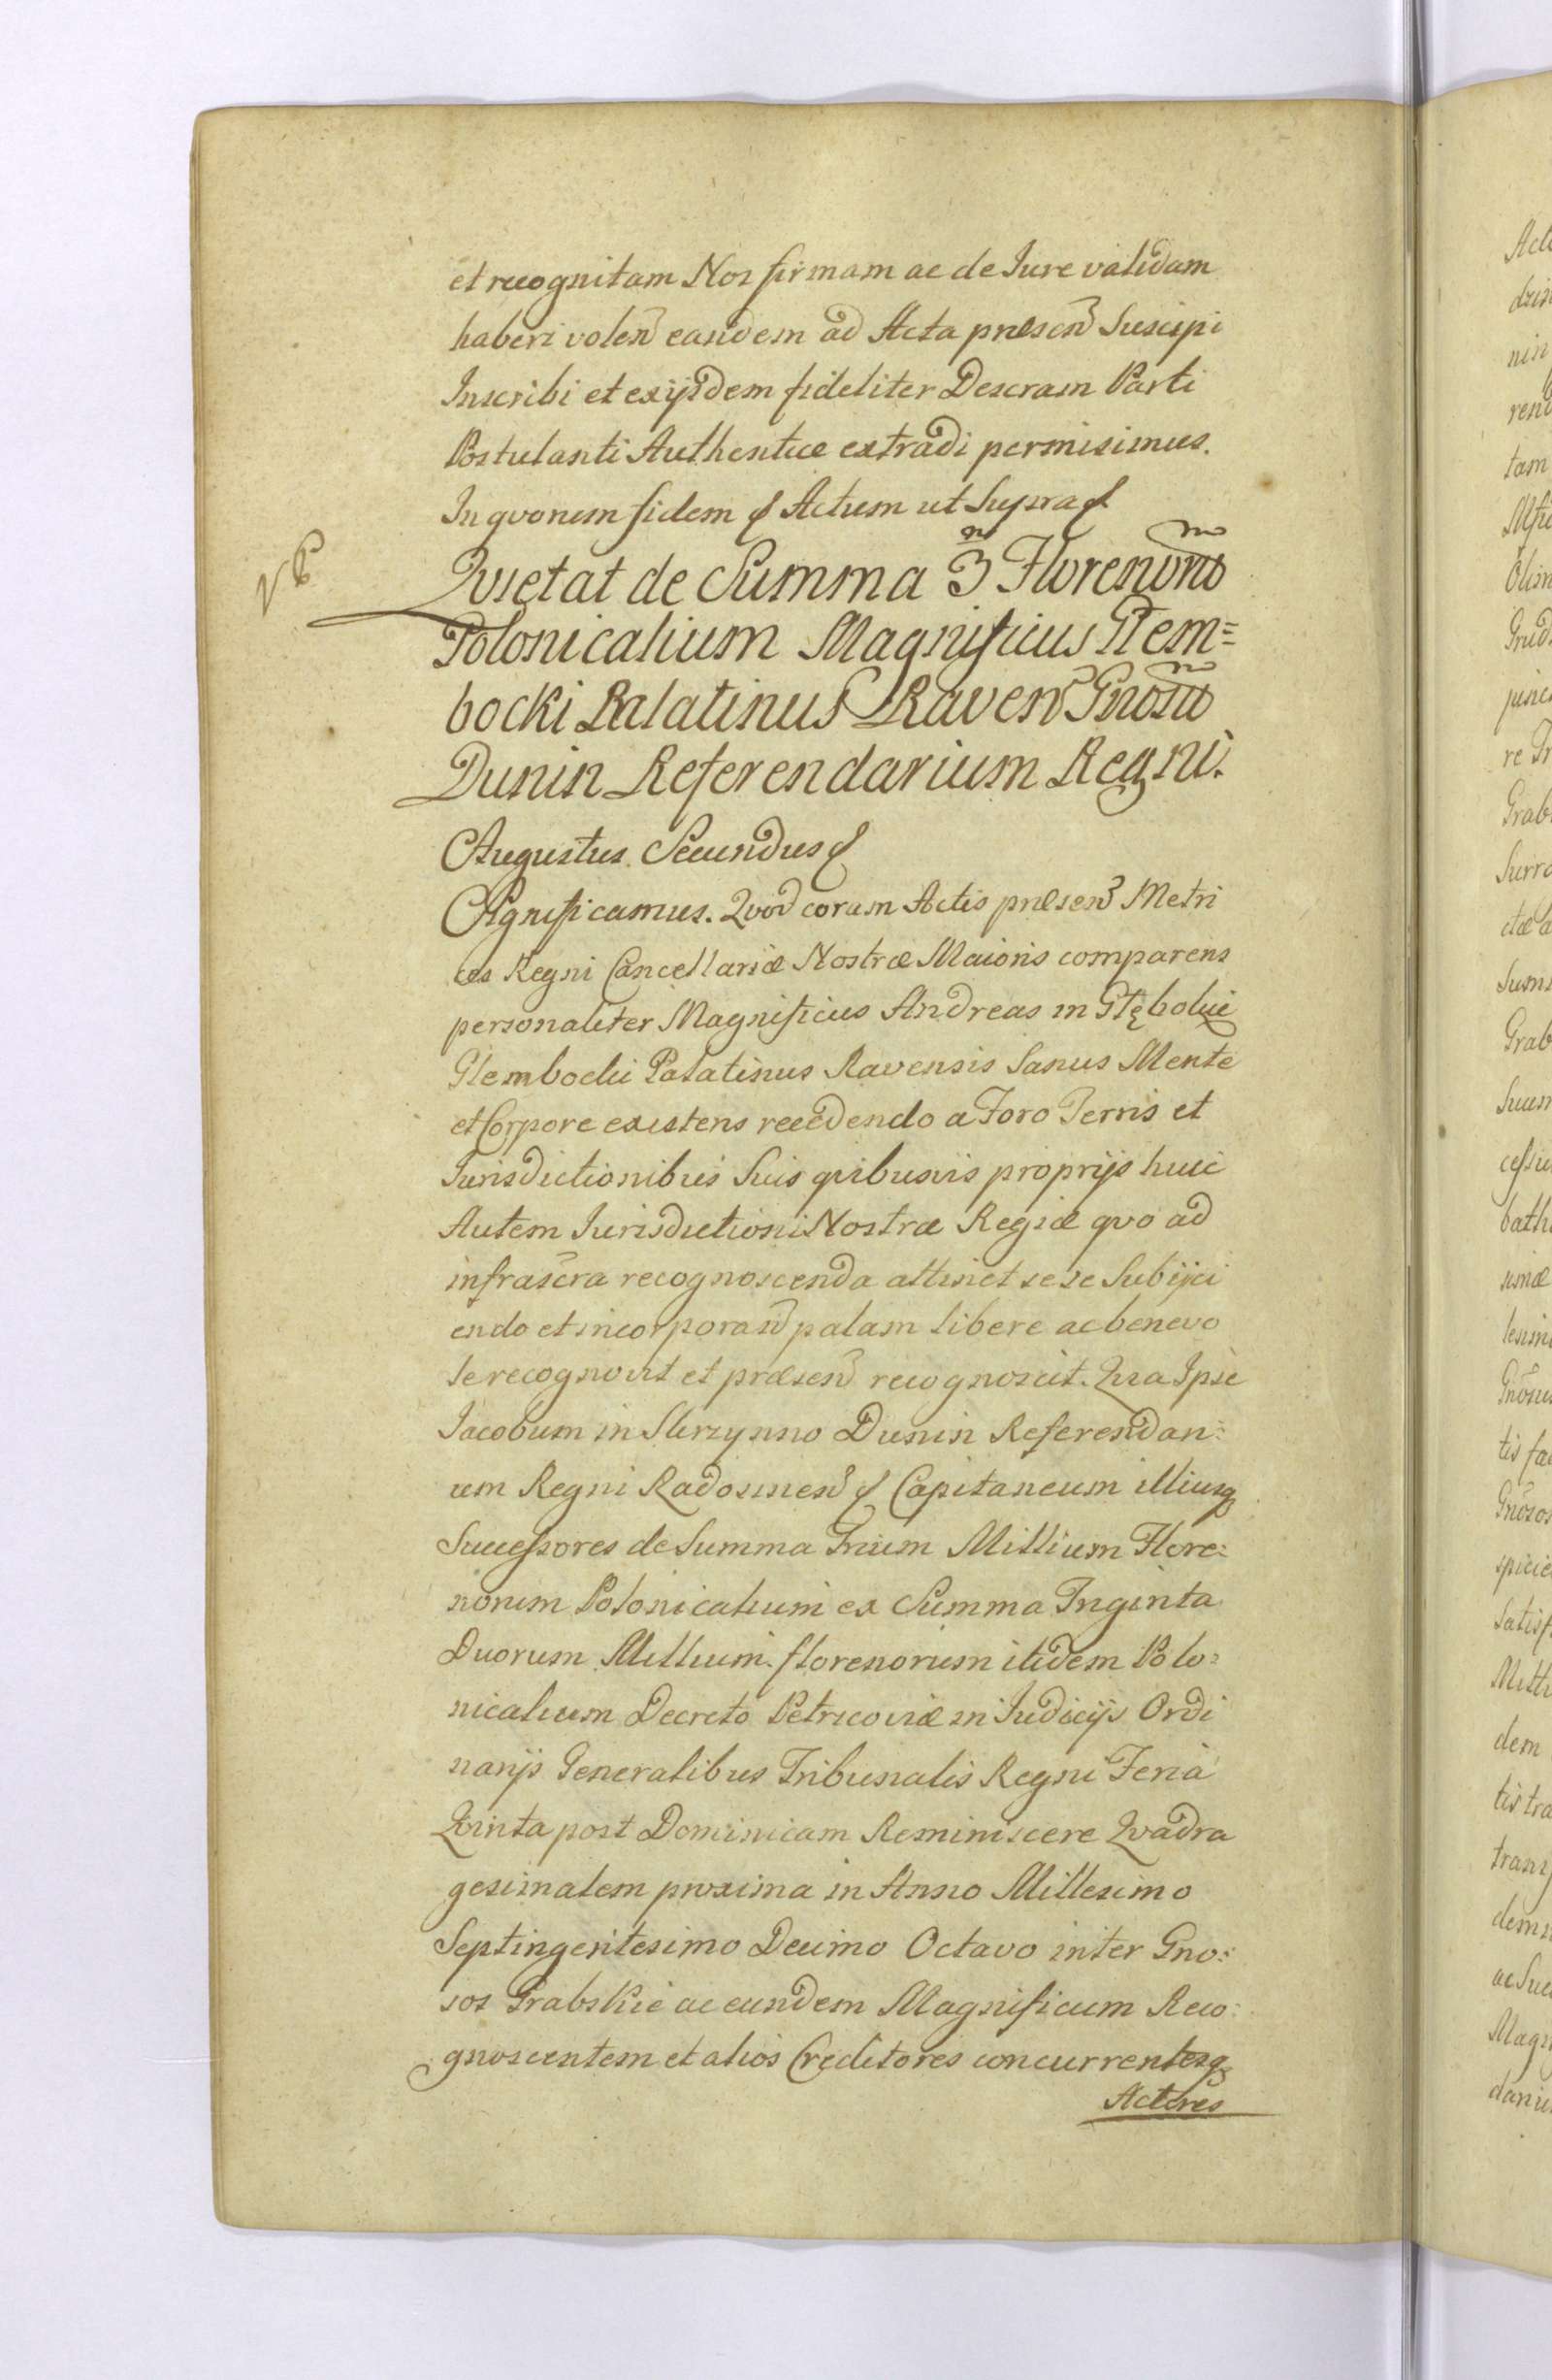 et recognitam Nos firmam ac de Iure validam
haberi volen̄ eandem ad Acta præsen̄ Suscipi
Inscribi et ex ijsdem fideliter Descram Parti
Postulanti Authentice extradi permisimus.
In quorum fidem ꝭ Actum ut Supra ꝭ
Qvietat de Summa 3 m̃ Florenorũ
Polonicalium Magnificus Glem=
bocki Palatinus Raven̄ Gnosũ
Dunin Referendarium Regni.
Augustus Secundus ꝭ
Significamus. Qvod coram Actis præsen̄ Metri
ces Regni Cancellariæ Nostræ Maioris comparens
personaliter Magnificus Andreas in Głębokie
Glembocki Palatinus Ravensis Sanus Mente
et Corpore existens recedendo a Foro Terris et
Iurisdictionibus Suis qvibusvis proprijs huic
Autem Iurisdictioni Nostræ Regiæ qvo ad
infrascra recognoscenda attinet sese Subijci
endo et incorporan̄ palam libere ac benevo
le recognovit et præsen̄ recognoscit. Qvia Ipse
Iacobum in Skrzynno Dunin Referendari=
um Regni Radomien̄ ꝭ Capitaneum illiusq
Successores de Summa Trium Millium Flore=
norum Polonicalium ex Summa Triginta
Duorum Millium florenorum itidem Polo=
nicalium Decreto Petricoviæ in Iudicijs Ordi
narijs Generalibus Tribunalis Regni Feria
Qvinta post Dominicam Reminiscere Qvadra
gesimalem proxima in Anno Millesimo
Septingentesimo Decimo Octavo inter Gno=
sos Grabskie ac eundem Magnificum Reco=
gnoscentem et alios Creditores concurrentesq
Actores